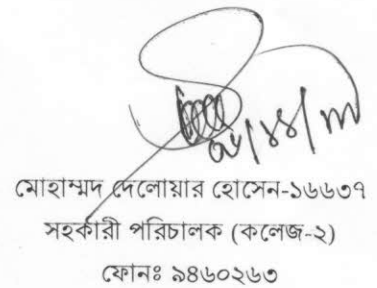 মোহাম্মদ দেলোয়ার হোসেন-১৬৬৩৭
সহকারী পরিচালক (কলেজ-২)
ফোনঃ ৯৪৬০২৬৩